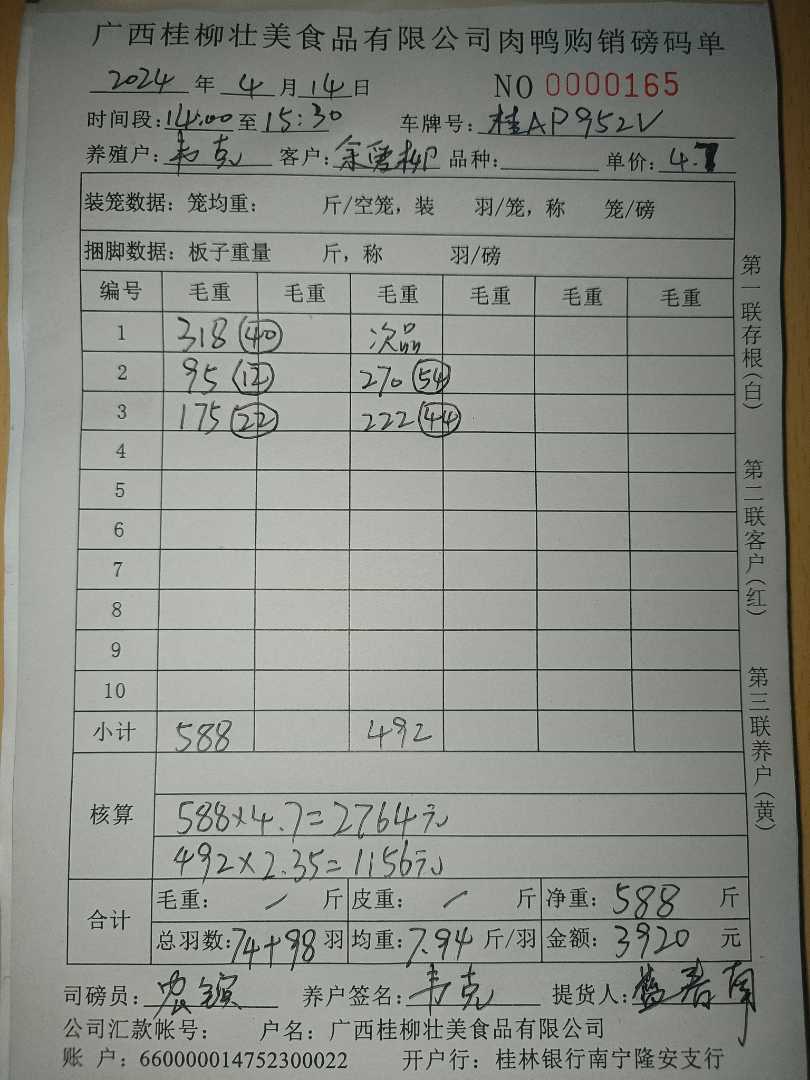 广西桂柳壮美食品有限公司肉鸭购销磅码单
2024 年 4 月 14 日 NO 0000165
时间段: 14:00 至 15:30 车牌号: 桂AP952V
养殖户: 韦克 客户: 余 柳 品种: 单价: 4.7
装笼数据: 笼均重: 斤/空笼, 装 羽/笼, 称 笼/磅
捆脚数据: 板子重量 斤, 称 羽/磅
编号 毛重 毛重 毛重 毛重 毛重 毛重
1 318 (40) 次品
2 95 (12) 270 (54)
3 175 (22) 222 (44)
4
5
6
7
8
9
10
小计 588 492
核算
588×4.7=2764元
492×2.35=1156元
合计
毛重: / 斤 皮重: / 斤 净重: 588 斤
总羽数: 74+98 羽 均重: 7.94 斤/羽 金额: 3920 元
司磅员: 农 养户签名: 韦克 提货人: 春南
公司汇款帐号: 户名: 广西桂柳壮美食品有限公司
账 户: 660000014752300022 开户行: 桂林银行南宁隆安支行
第一联存根(白)
第二联客户(红)
第三联养户(黄)